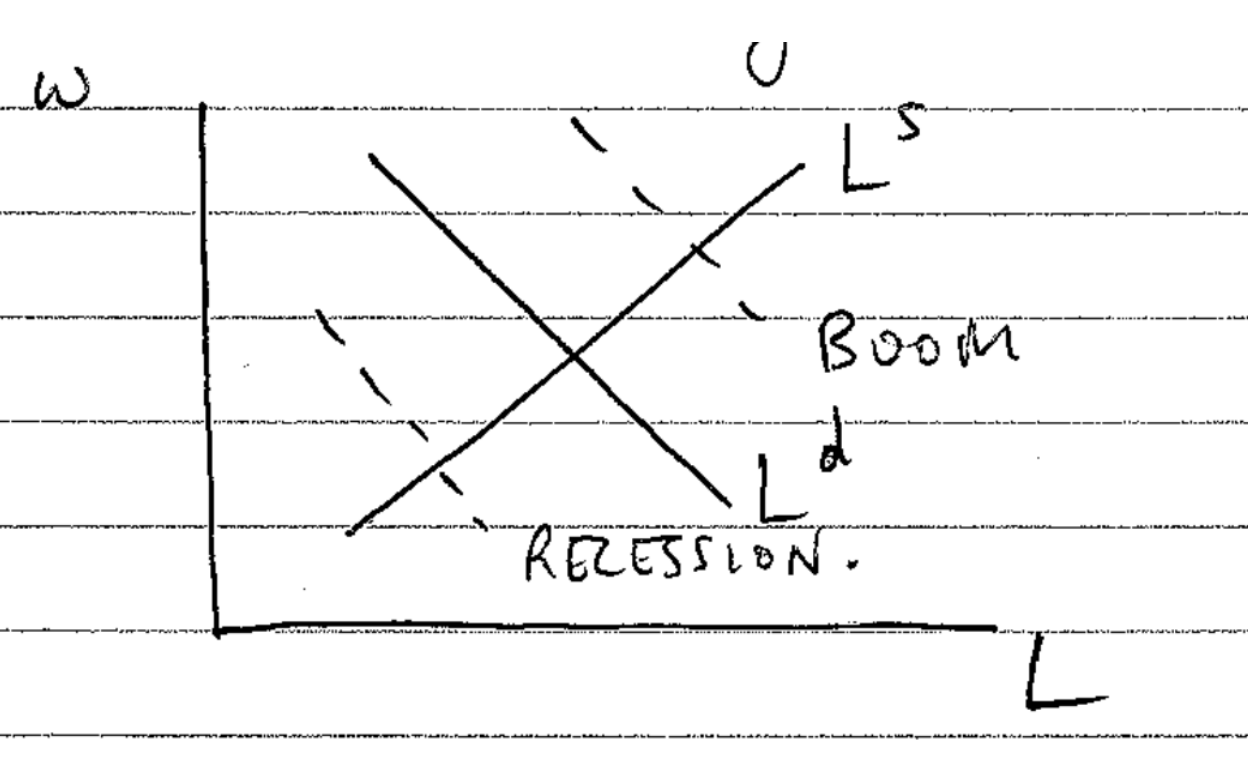 W
L^s
BOOM
L^d
RECESSION.
L